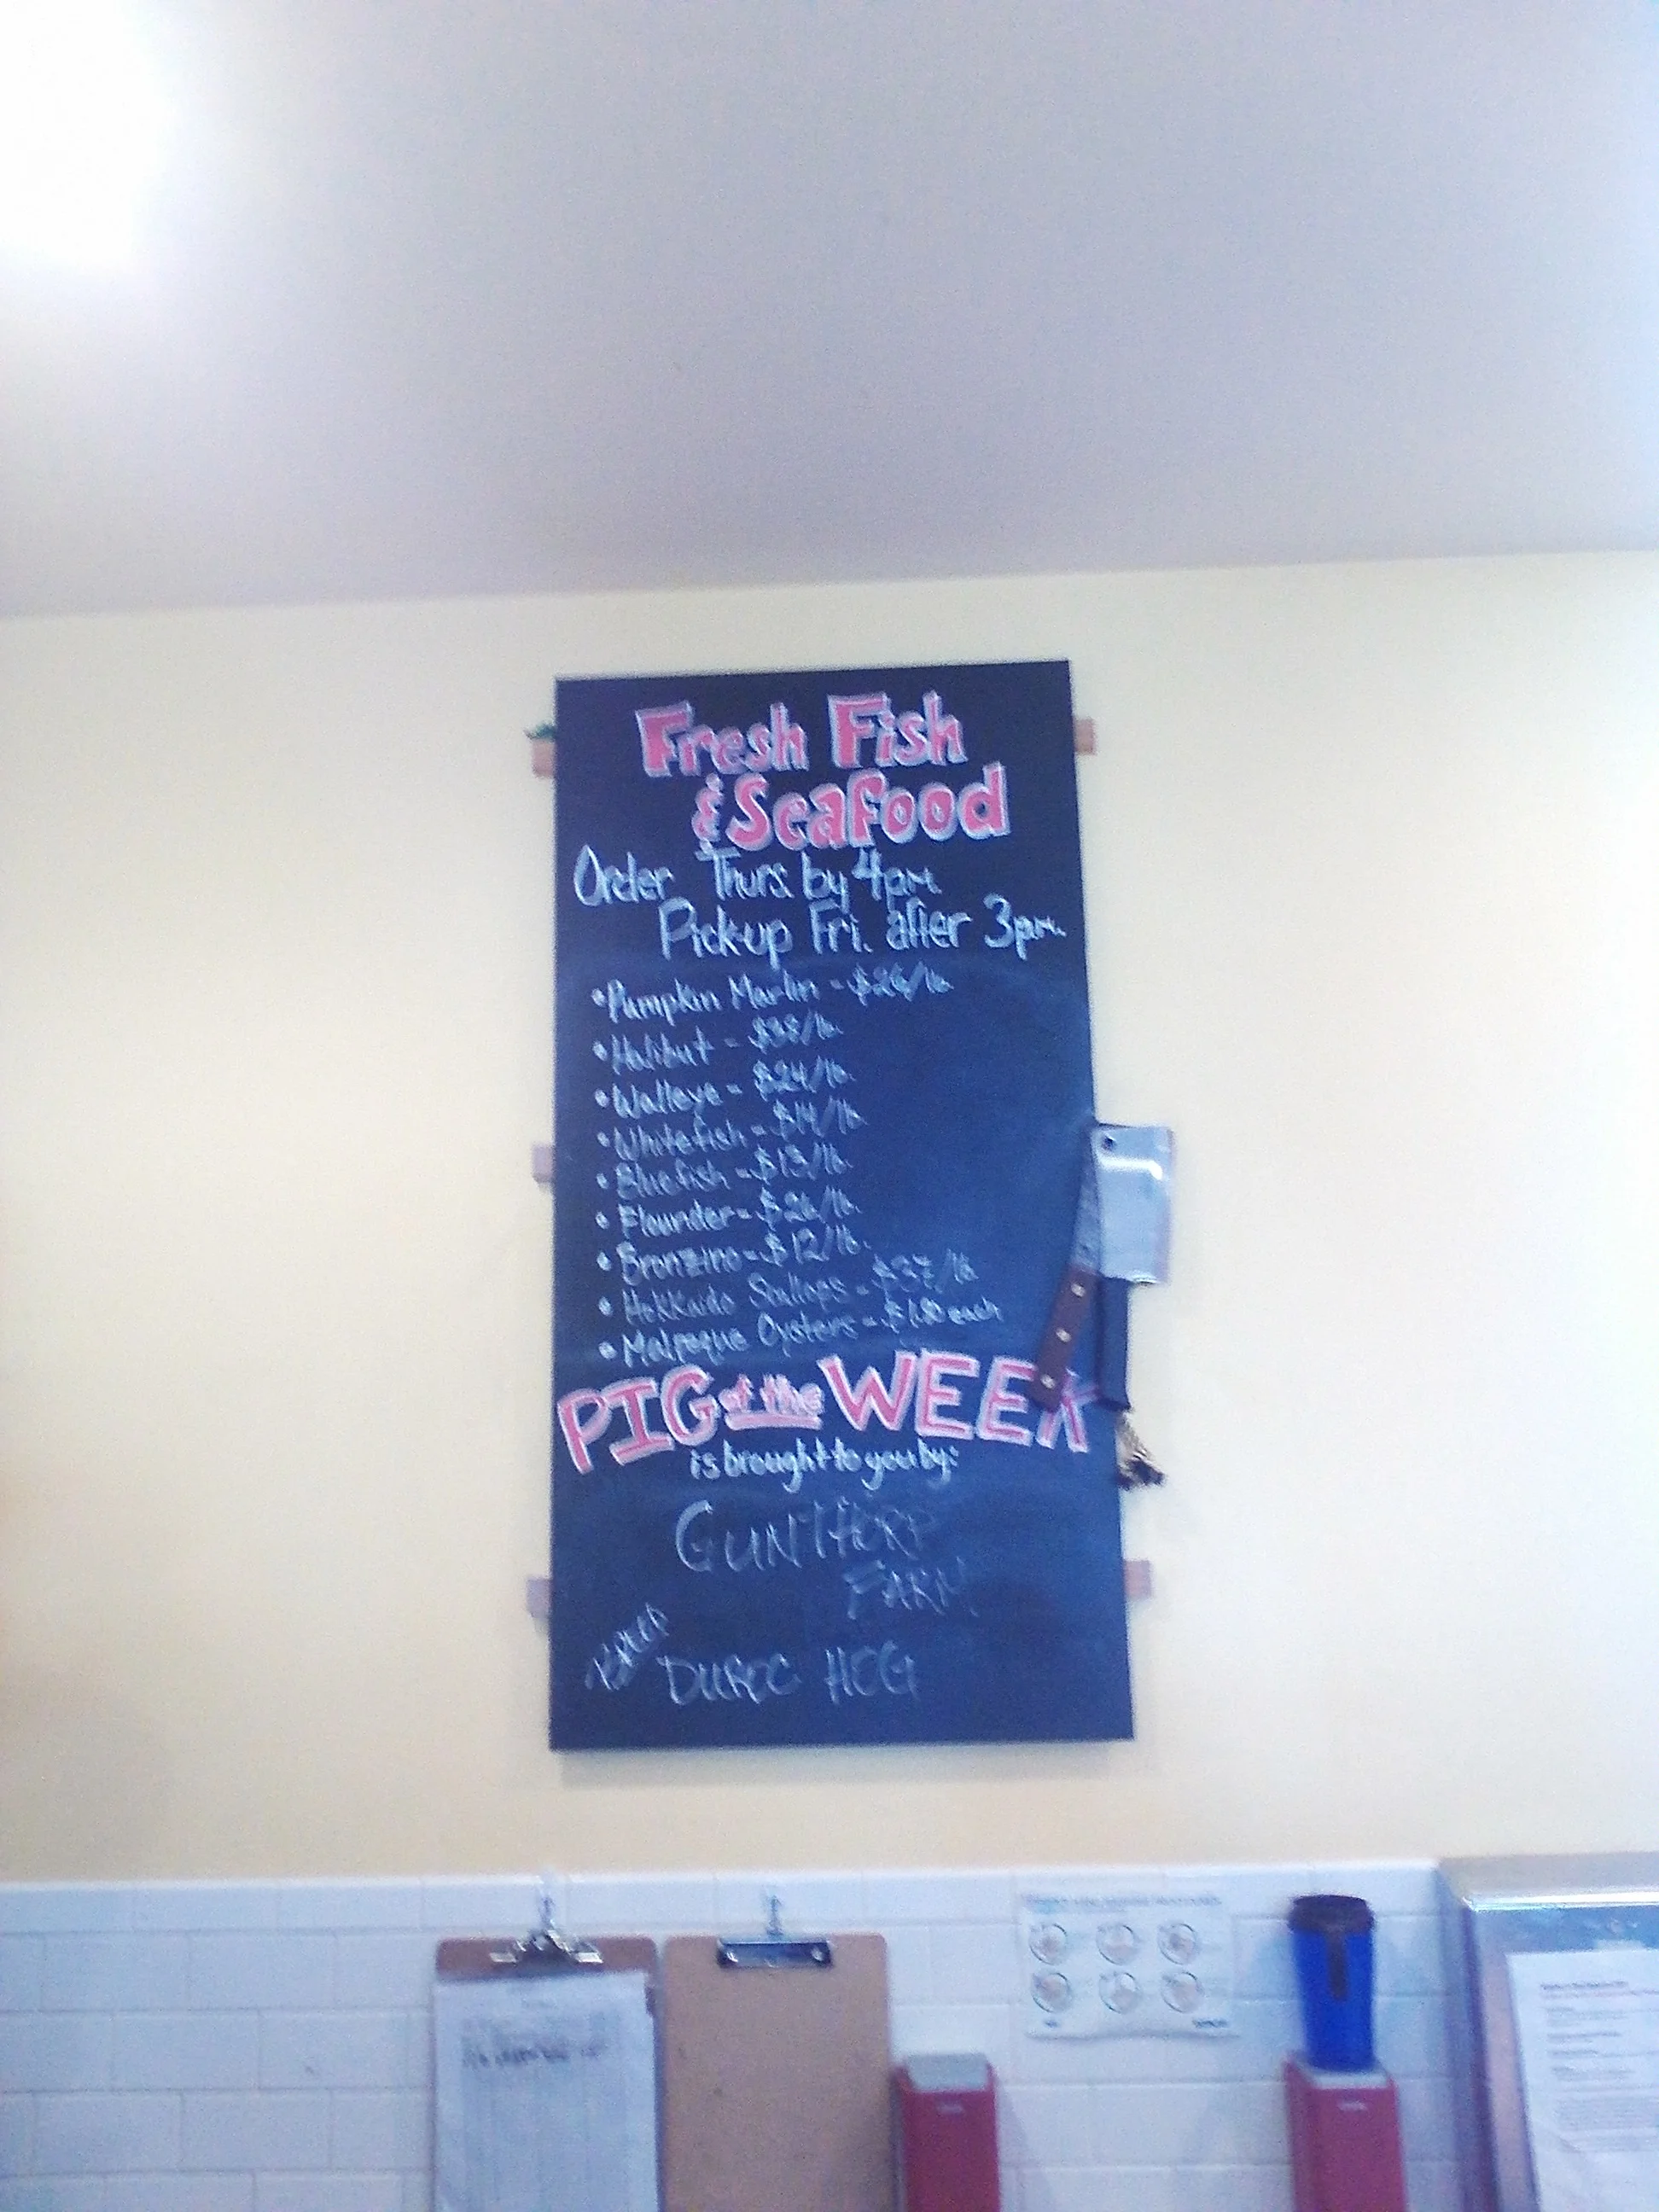 Fresh Fish
& Seafood
Order Thurs. by 4pm.
Pickup Fri. after 3pm.
• Pumpkin Marlin - $26/lb.
• Halibut - $38/lb.
• Walleye - $24/lb.
• Whitefish - $14/lb.
• Bluefish - $13/lb.
• Flounder - $26/lb.
• Bronzino - $12/lb.
• Hokkaido Scallops - $37/lb.
• Malpeque Oysters - $1.80 each
PIG of the WEEK
is brought to you by:
GUNTHORP
FARM
DUROC HOG